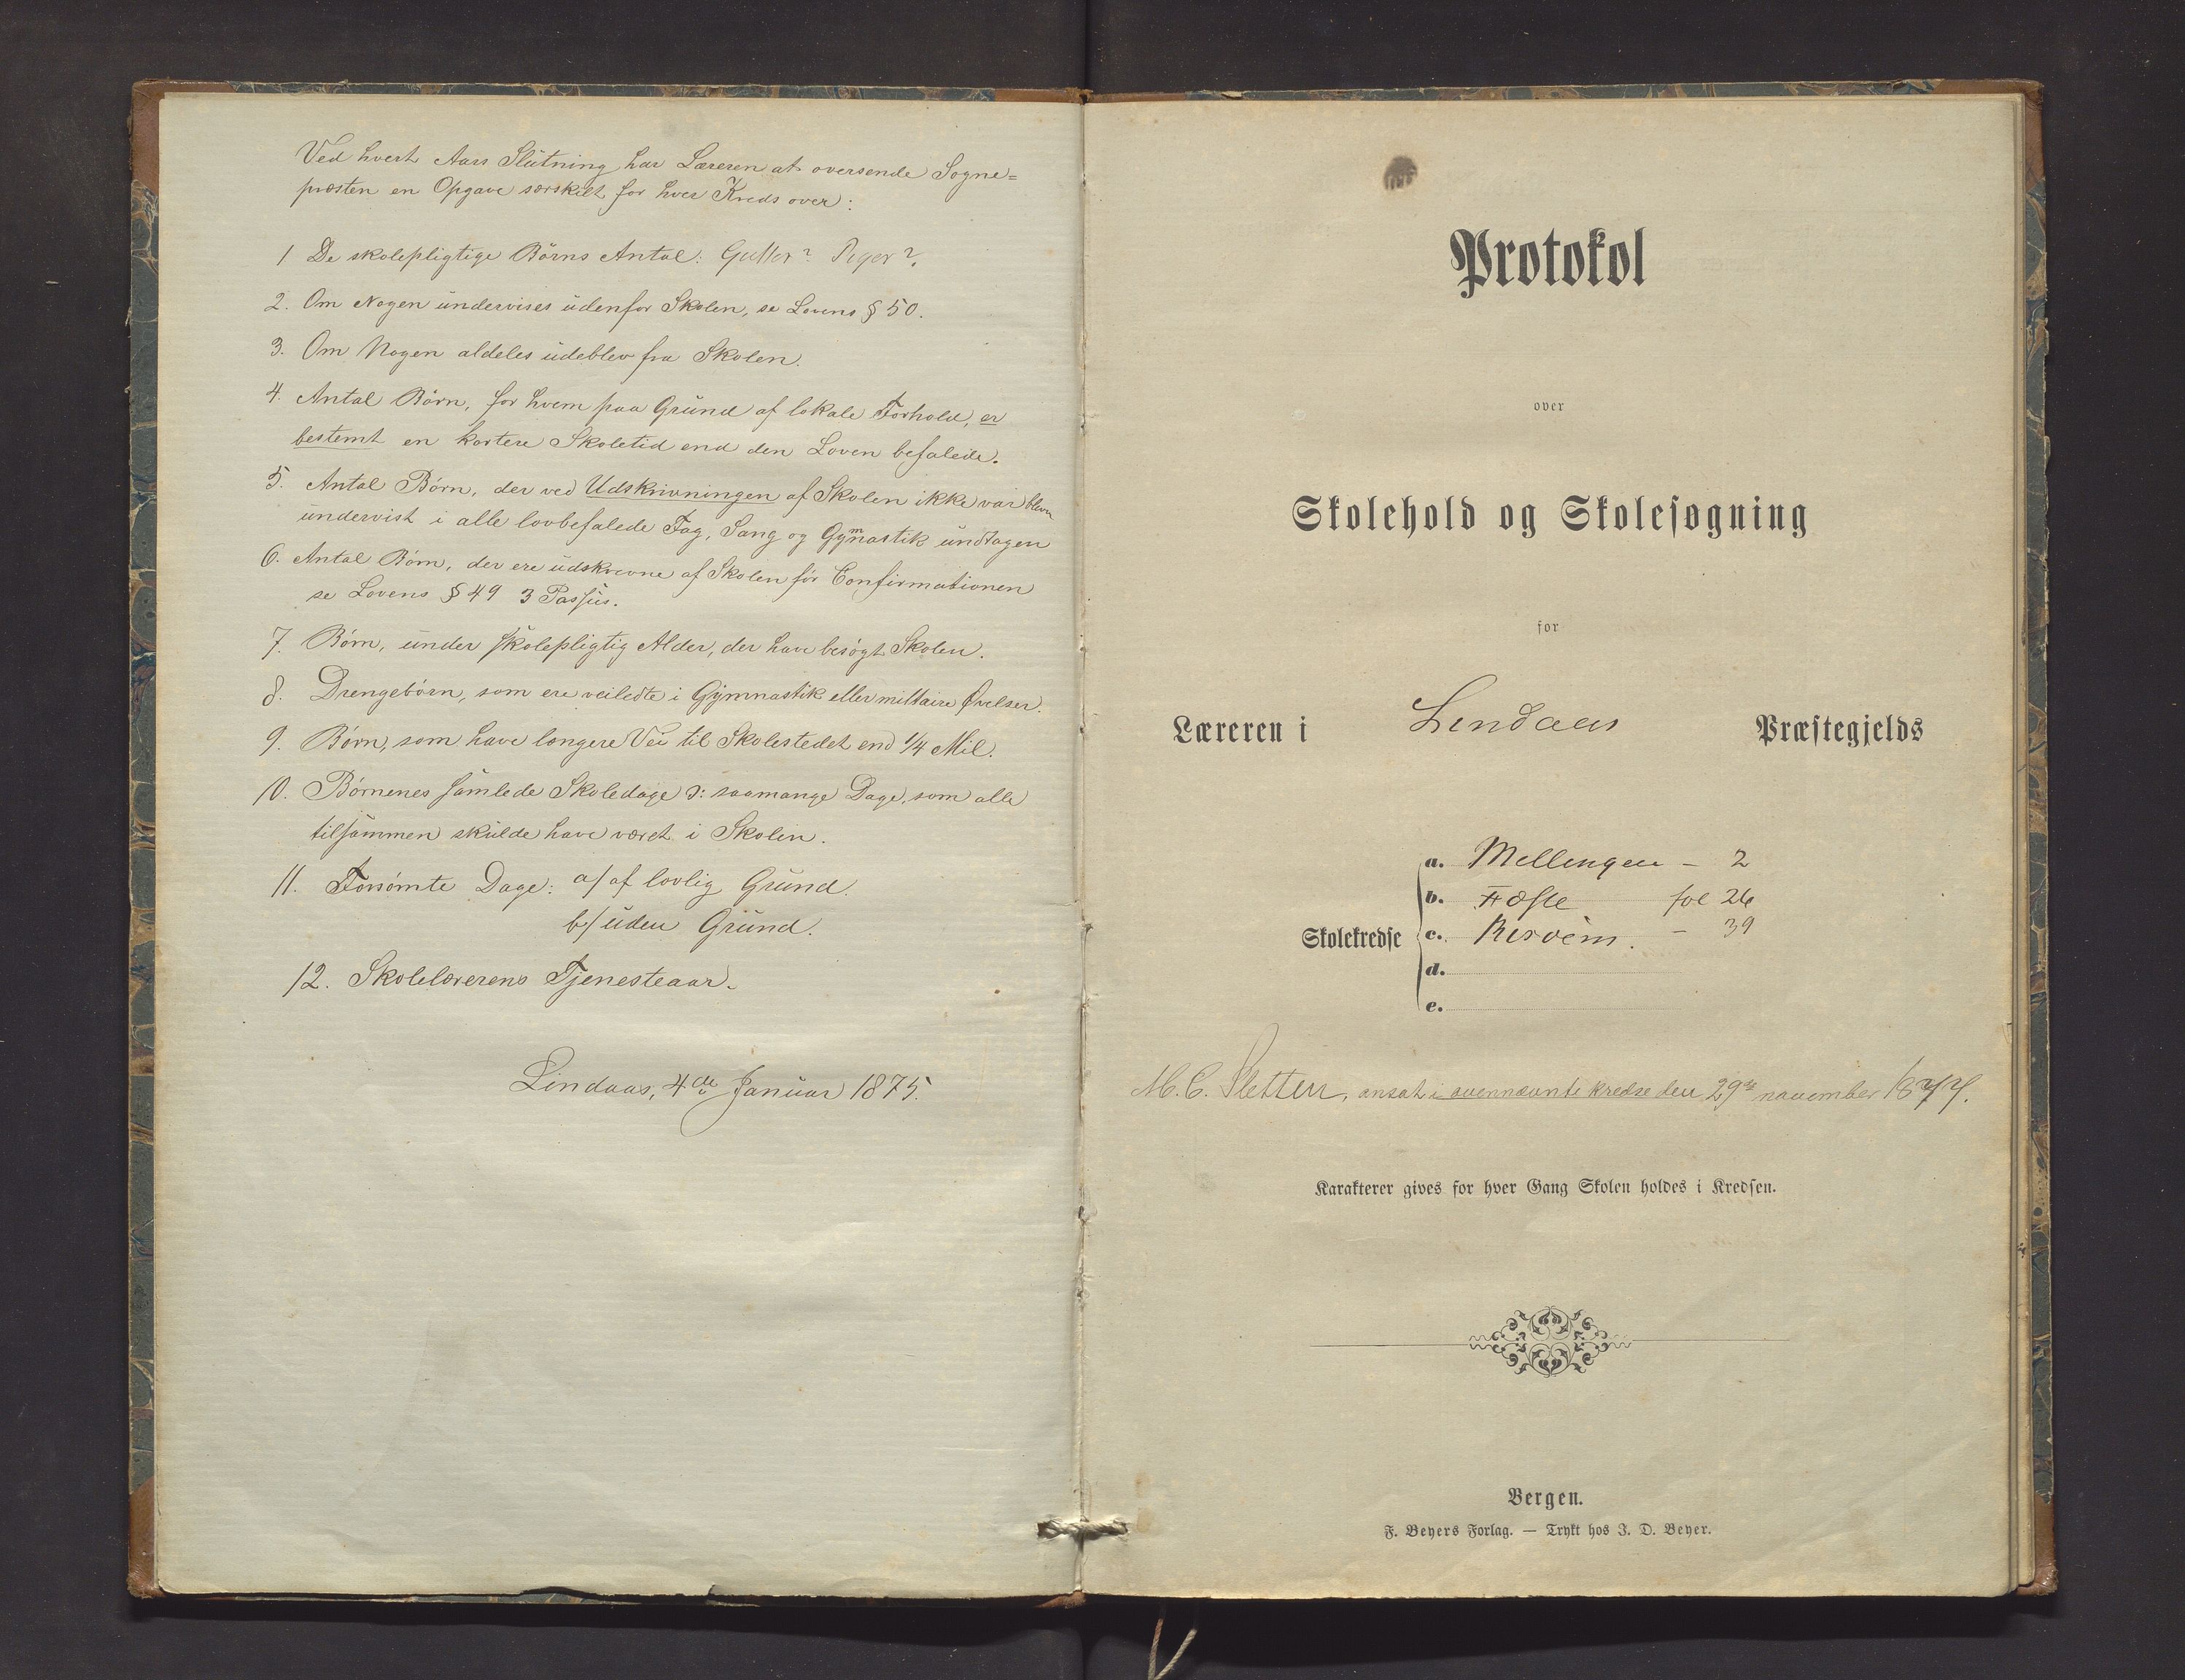 Ved hvert Aars Slutning har Læreren at oversende Sogne=
præsten en Opgave særskilt for hver Kreds over:
1 De skolepligtige Börns Antal: Gutter? Piger?
2. Om Nogen undervises udenfor Skolen, se Lovens § 50.
3. Om Nogen aldeles udeblev fra Skolen.
4. Antal Börn, for hvem paa Grund af lokale Forhold, er
bestemt en kortere Skoletid end den Loven befalede.
5. Antal Börn, der ved Udskrivningen af Skolen ikke var bleven
undervist i alle lovbefalede Fag, Sang og Gymnastik undtagen
6. Antal Börn, der ere udskrevne af Skolen för Confirmationen
se Lovens § 49 3 Passus.
7. Börn, under skolepligtig Alder, der have besögt Skolen.
8. Drengebörn, som ere veiledte i Gymnastik eller militaire Øvelser.
9. Börn, som have længere Vei til Skolestedet end 1/4 Mil.
10. Börnenes samlede Skoledage ɔ: saamange Dage, som alle
tilsammen skulde have været i Skolen.
11. Forsömte Dage: a/ af lovlig Grund.
b/ uden Grund.
12. Skolelærerens Tjenesteaar.
Lindaas, 4de Januar 1875.
Protokol
over
Skolehold og Skolesøgning
for
Læreren i Lindaas Præstegjelds
Skolekredse
a. Mellingen - 2
b. Fæste fol 26
c. Risöen. - 39
d.
e.
M. C. Sletten, ansat i ovennævnte kredse den 29de november 1877.
Karakterer gives for hver Gang Skolen holdes i Kredsen.
Bergen.
F. Beyers Forlag. — Trykt hos J. D. Beyer.